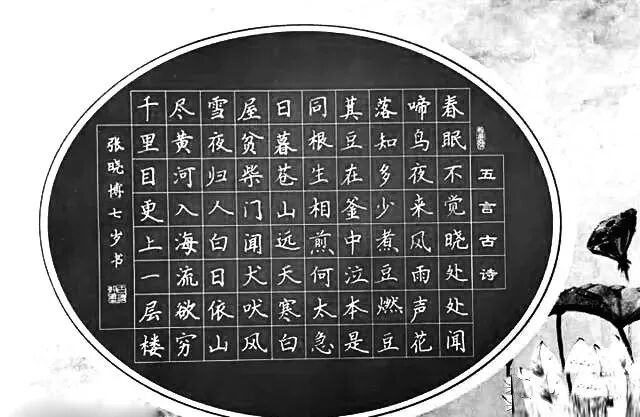 五言古诗
春眠不觉晓处处闻
啼鸟夜来风雨声花
落知多少煮豆燃豆
其豆在釜中泣本是
同根生相煎何太急
日暮苍山远天寒白
屋贫柴门闻犬吠风
雪夜归人白日依山
尽黄河入海流欲穷
千里目更上一层楼
张晓博七岁书